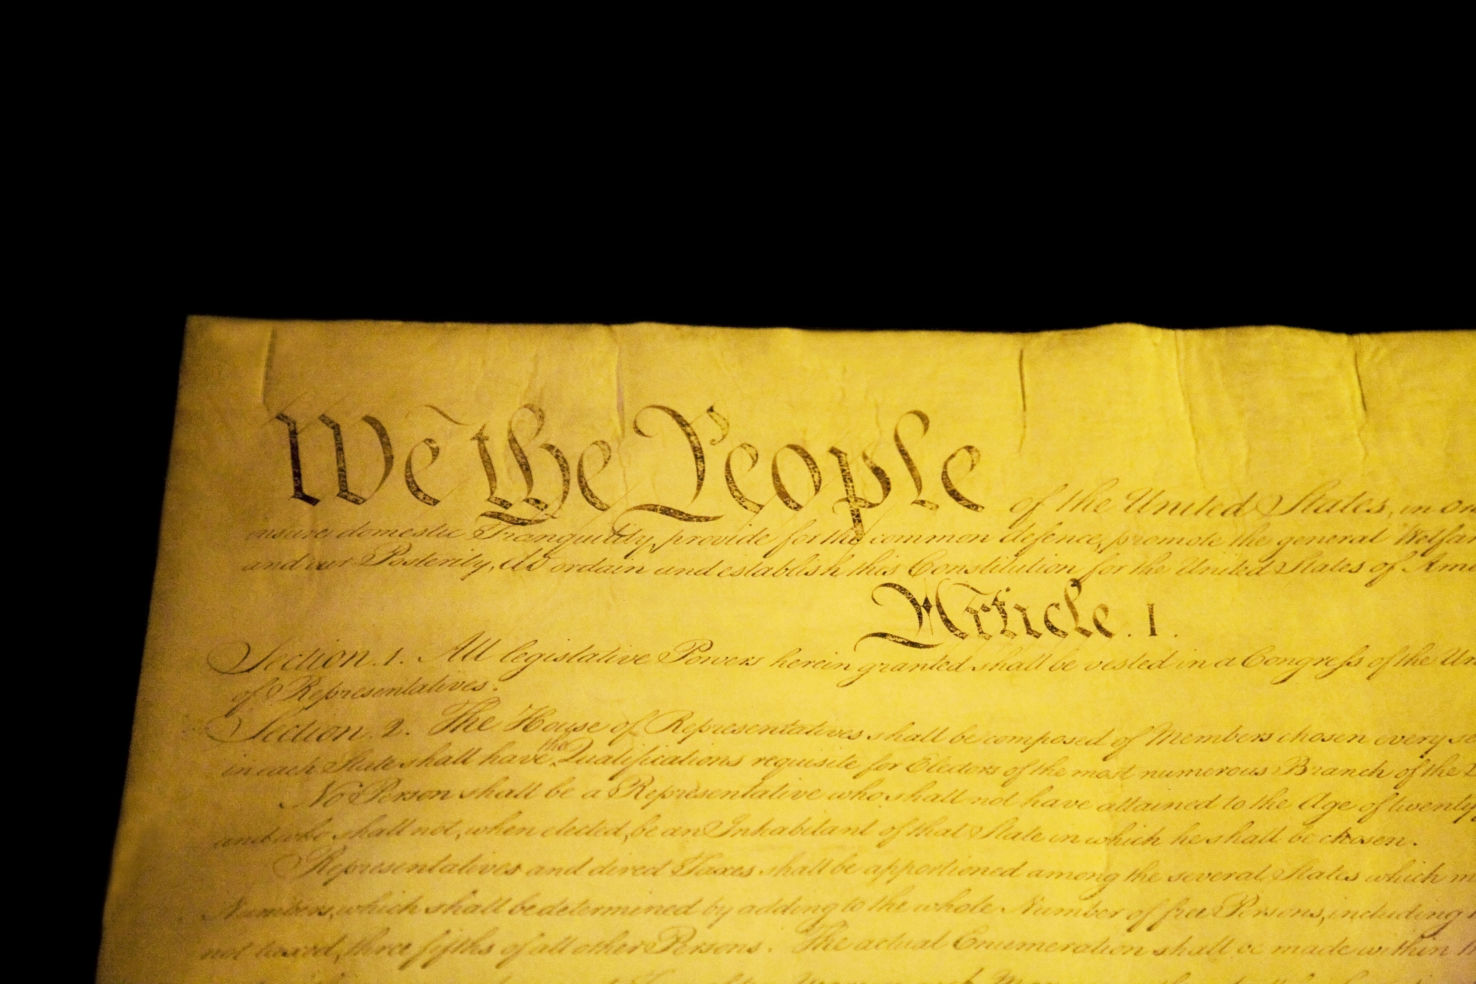 We the People of the United States, in
insure domestic Tranquility, provide for the common defence, promote the general Welfar
and our Posterity, do ordain and establish this Constitution for the United States of Ame
Article. I.
Section. 1. All legislative Powers herein granted shall be vested in a Congress of the Un
of Representatives.
Section. 2. The House of Representatives shall be composed of Members chosen every se
in each State shall have the Qualifications requisite for Electors of the most numerous Branch of the
No Person shall be a Representative who shall not have attained to the Age of twenty
and who shall not, when elected, be an Inhabitant of that State in which he shall be chosen.
Representatives and direct Taxes shall be apportioned among the several States which m
Numbers, which shall be determined by adding to the whole Number of free Persons, including
not taxed, three fifths of all other Persons. The actual Enumeration shall be made within